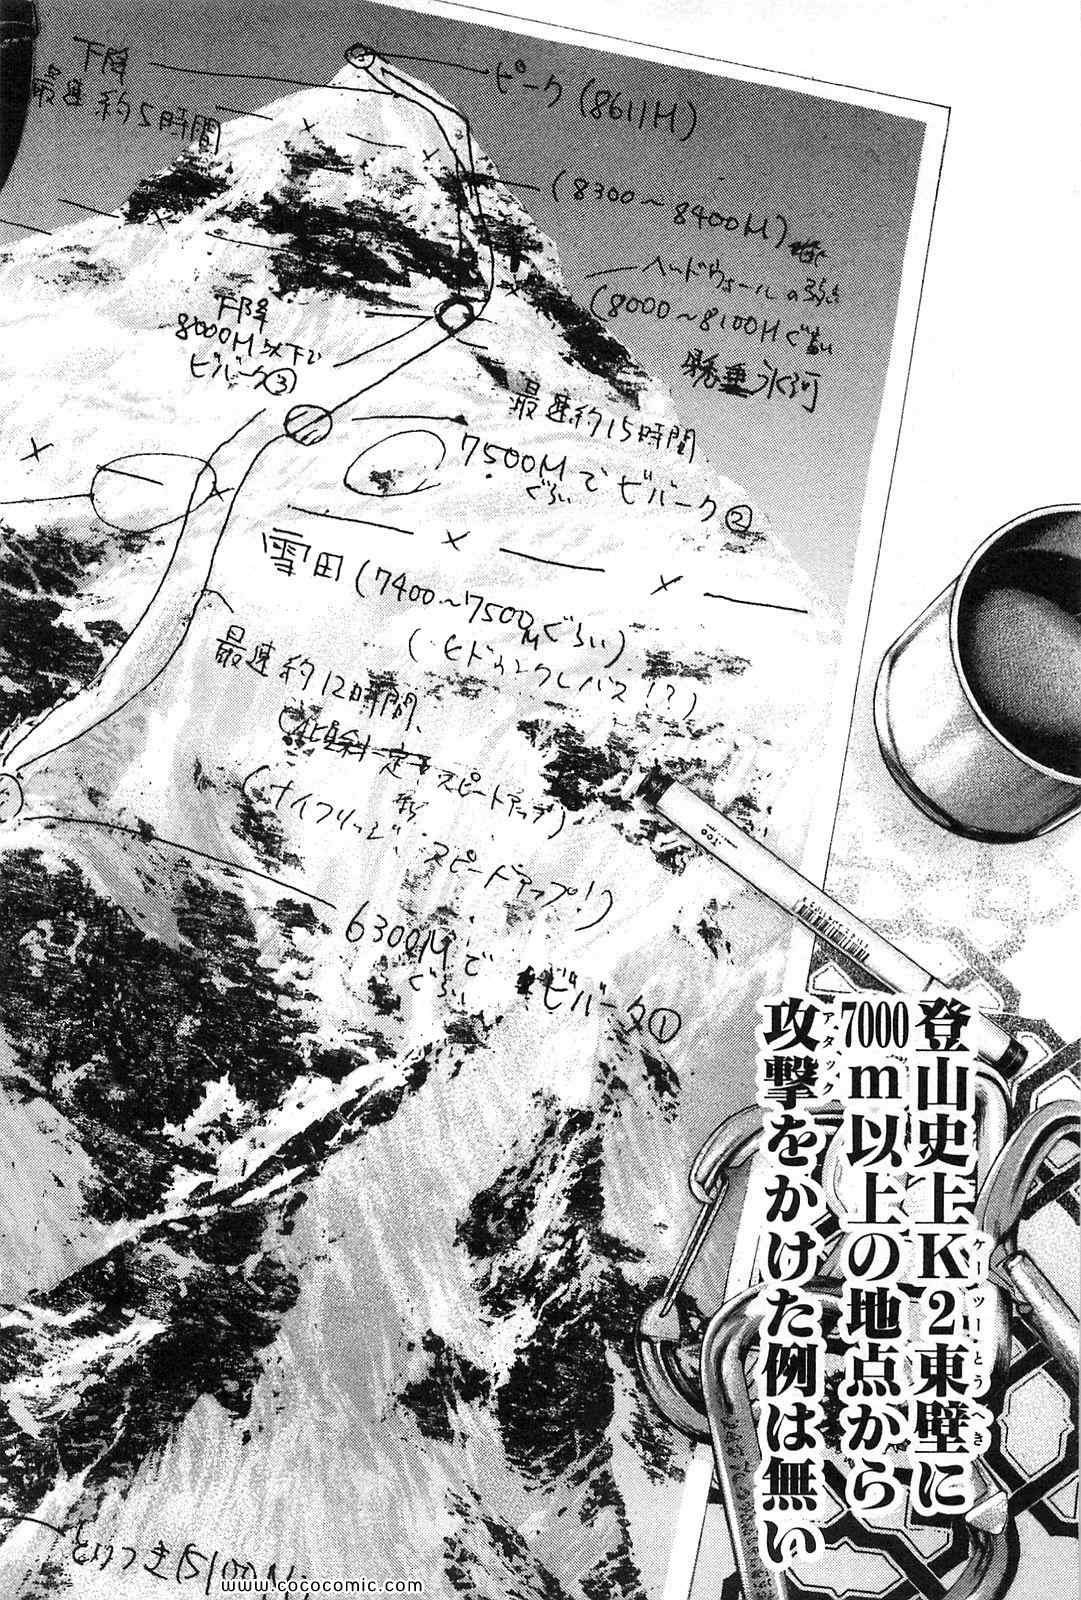 下降
最速約5時間
ピーク(8611M)
(8300～8400M)
ヘッドウォールの弱点
(8000～8100Mぐらい
懸垂氷河
下降
8000M以下で
ビバーク③
最速約15時間
7500Mでビバーク②
ぐらい
雪田(7400～7500Mぐらい)
(ヒドゥンクレバス!?)
最速約12時間
スピードアップ)
(ナイフリッジ、スピードアップ!?)
6300Mでビバーク①
ぐらい
とりつき(5100M)
登山史上K2東壁に
ケーツーとうへき
7000m以上の地点から
攻撃をかけた例は無い
アタック
www.cococomic.com